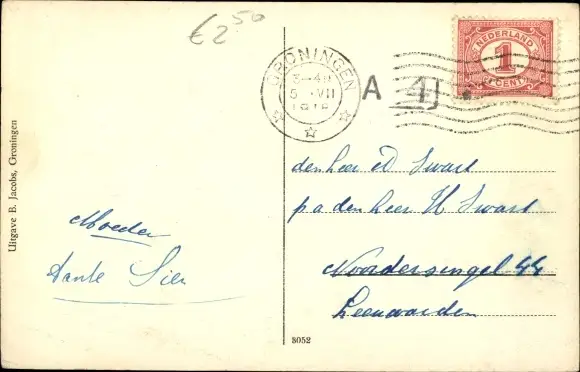 €2.50
GRONINGEN
5 VII
A
4
NEDERLAND
1
CENT
Uitgave B. Jacobs, Groningen
den heer D Swart
p a den heer H Swart
Noordersingel 44
Leeuwarden
Moeder
Tante Sien
3052